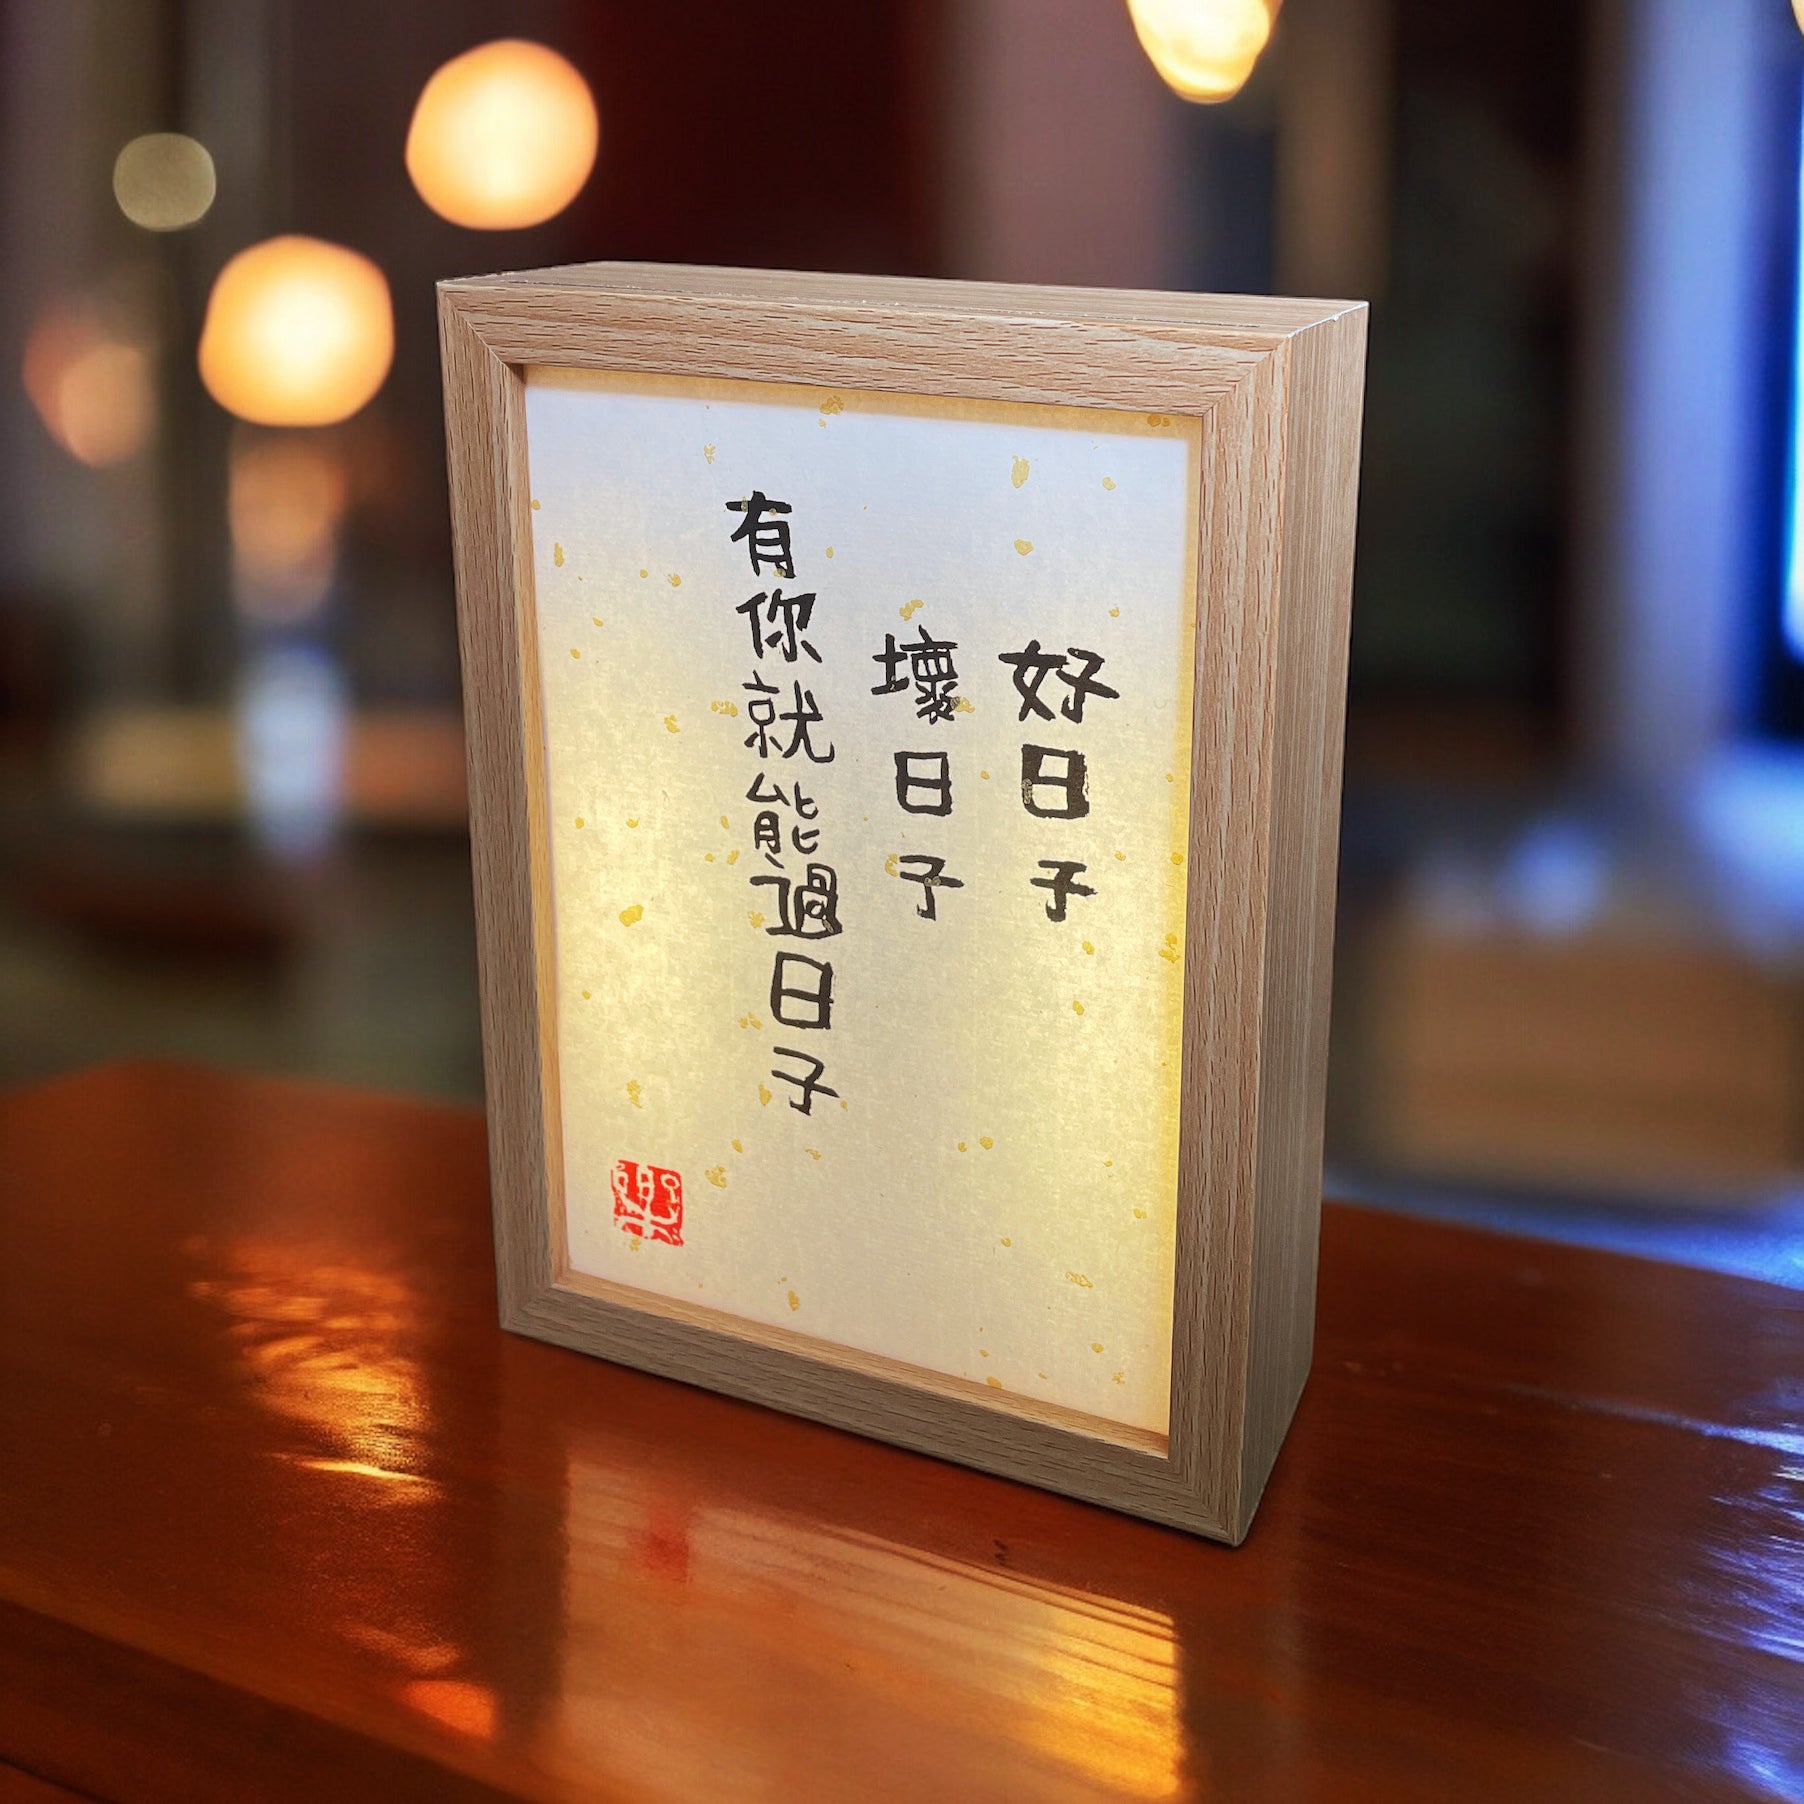 好日子
壞日子
有你就能過日子